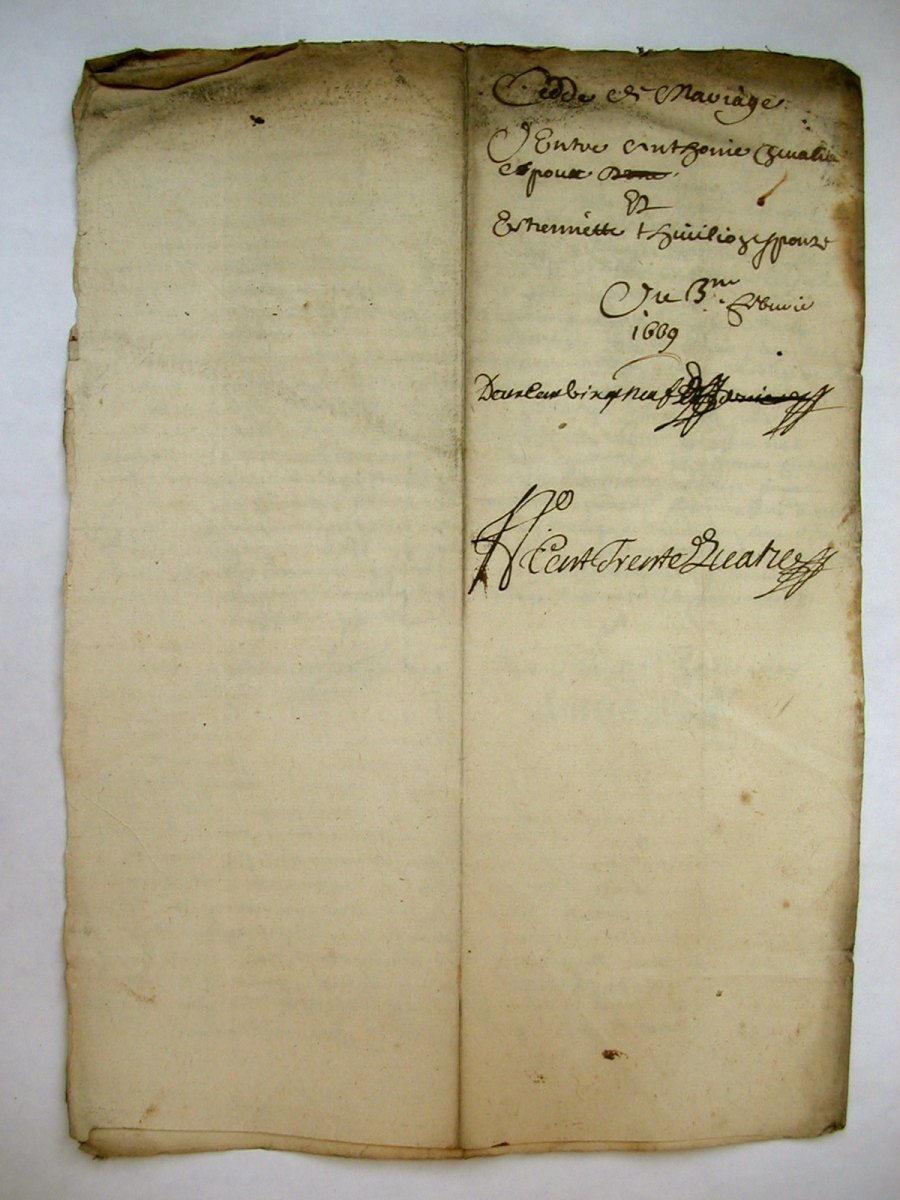 Cedde de Mariage
Entre Anthonie Chevalie
Espoux
Et
Estiennette thivilioz espouze
Du 3me febvrie
1669
Deux cens vingt neuf
No Cent Trente Quatre